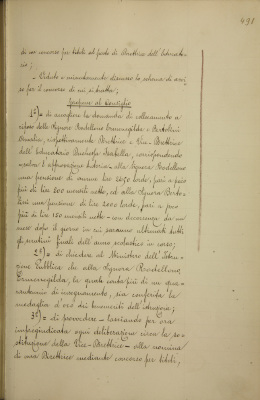 491
di un concorso per titoli al posto di Direttrice dell'Educatorio;
Veduto e minutamente discusso lo schema di avviso per il concorso di cui si tratta;
propone al Consiglio
1º = di accogliere la domanda di collocamento a
riposo delle Signore Rodellono Ermenegilda e Bertolini
Amalia, rispettivamente Direttrice e Vice-Direttrice
dell'Educatorio Duchessa Isabella, corrispondendo
alla Signora Rodellono
una pensione di annue lire 2450 lorde, pari a poco
più di lire 200 mensili nette, ed alla Signora Bertolini
una pensione di lire 2000 lorde, pari a poco
più di lire 150 mensili nette - con decorrenza da un
mese dopo il giorno in cui saranno ultimati tutti
gli scrutini finali dell'anno scolastico in corso;
2º = di chiedere al Ministero dell'Istruzione
Pubblica che alla Signora Rodellono
Ermenegilda, la quale conta più di un quarantennio
di insegnamento, sia conferita la
medaglia d'oro dei benemeriti dell'
3º = di provvedere - lasciando per ora
impregiudicata ogni deliberazione circa la sostituzione
della Vice-Direttrice - alla nomina
di una Direttrice mediante concorso per titoli,